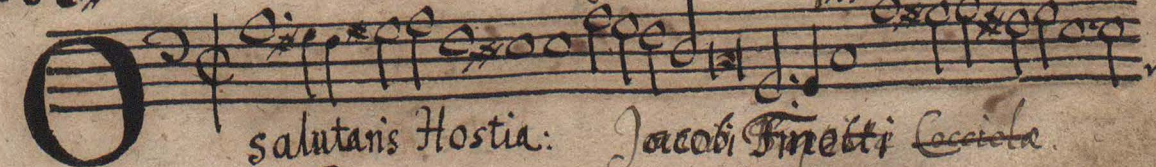 O salutaris Hostia: Jacobi Finetti Cocciola.